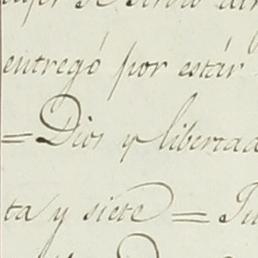 entregó por estár
=Dios y libertad
ta y siete = Ju